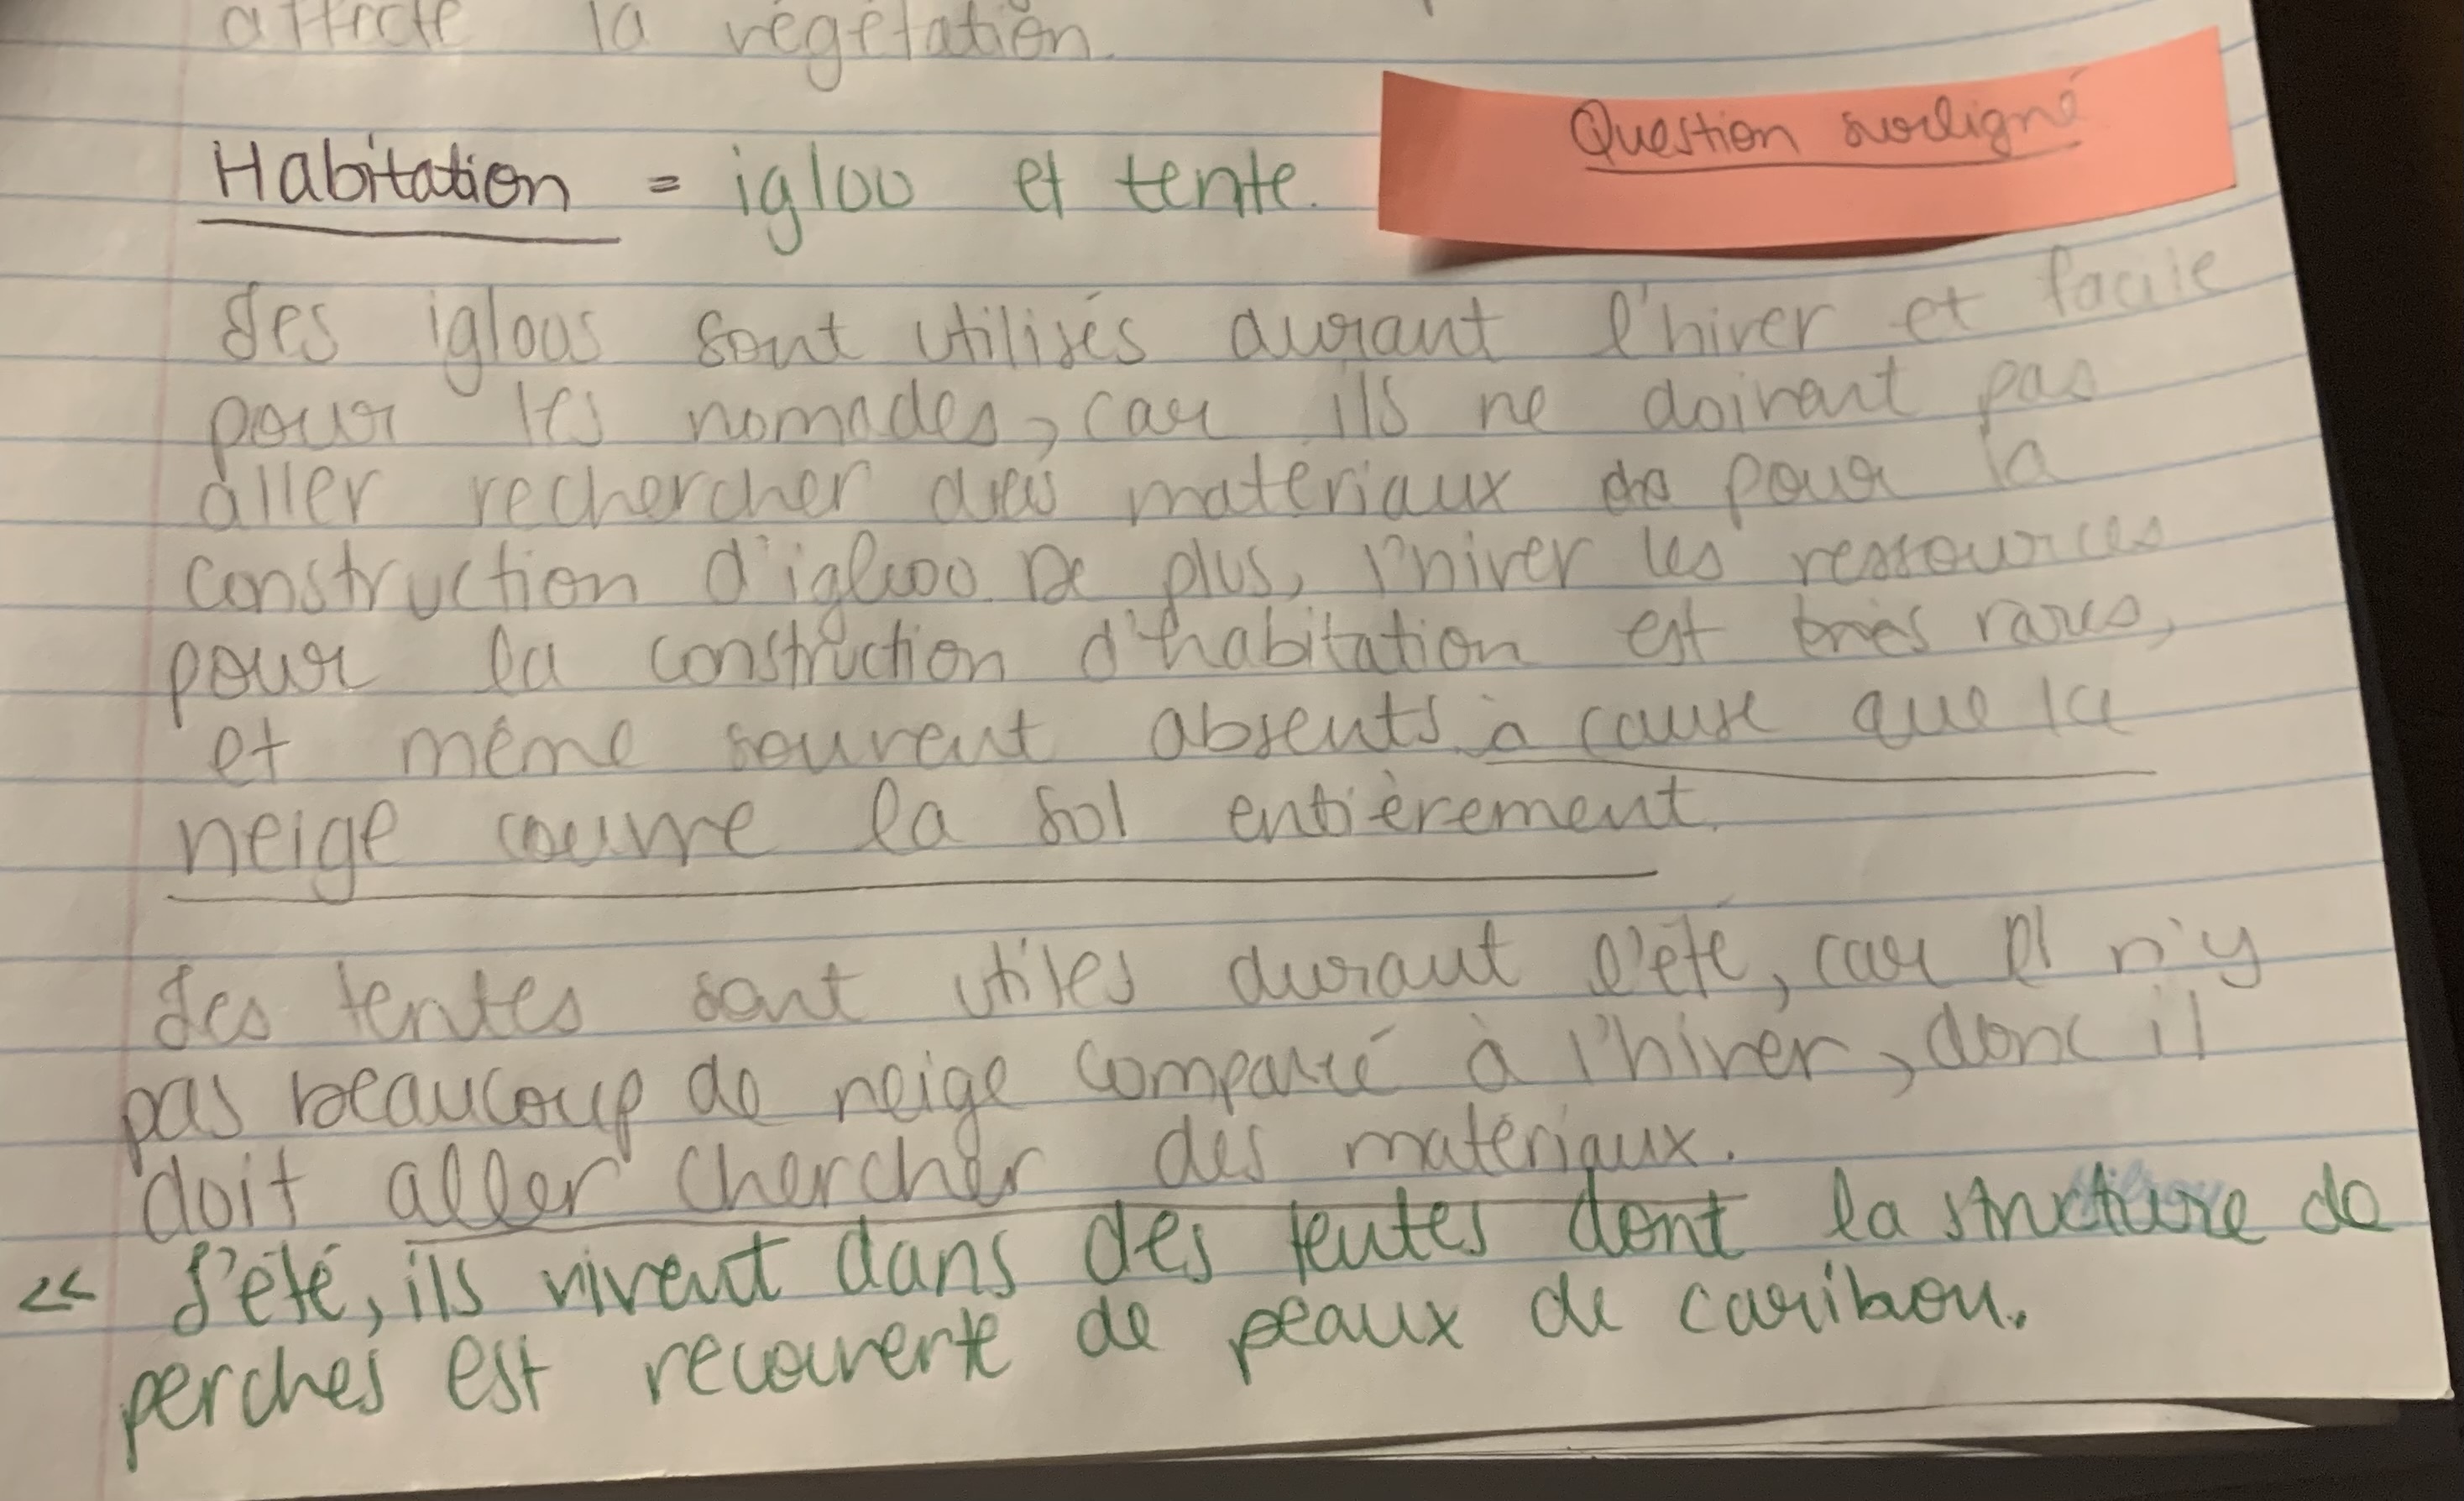 affecte la végétation.
Habitation = igloo et tente.
Question surligné
Les iglous sont utilisés durant l'hiver et facile
pour les nomades, car ils ne doivent pas
aller rechercher des matériaux de pour la
construction d'igluoo. De plus, l'hiver les ressources
pour la construction d'habitation est très rares,
et même souvent absents à cause que la
neige couvre la sol entièrement.
Les tentes sont utiles durant l'été, car il n'y
pas beaucoup de neige comparé à l'hiver, donc il
doit aller chercher des matériaux.
<< L'été, ils vivent dans des tentes dont la structure de
perches est recouverte de peaux de caribou.